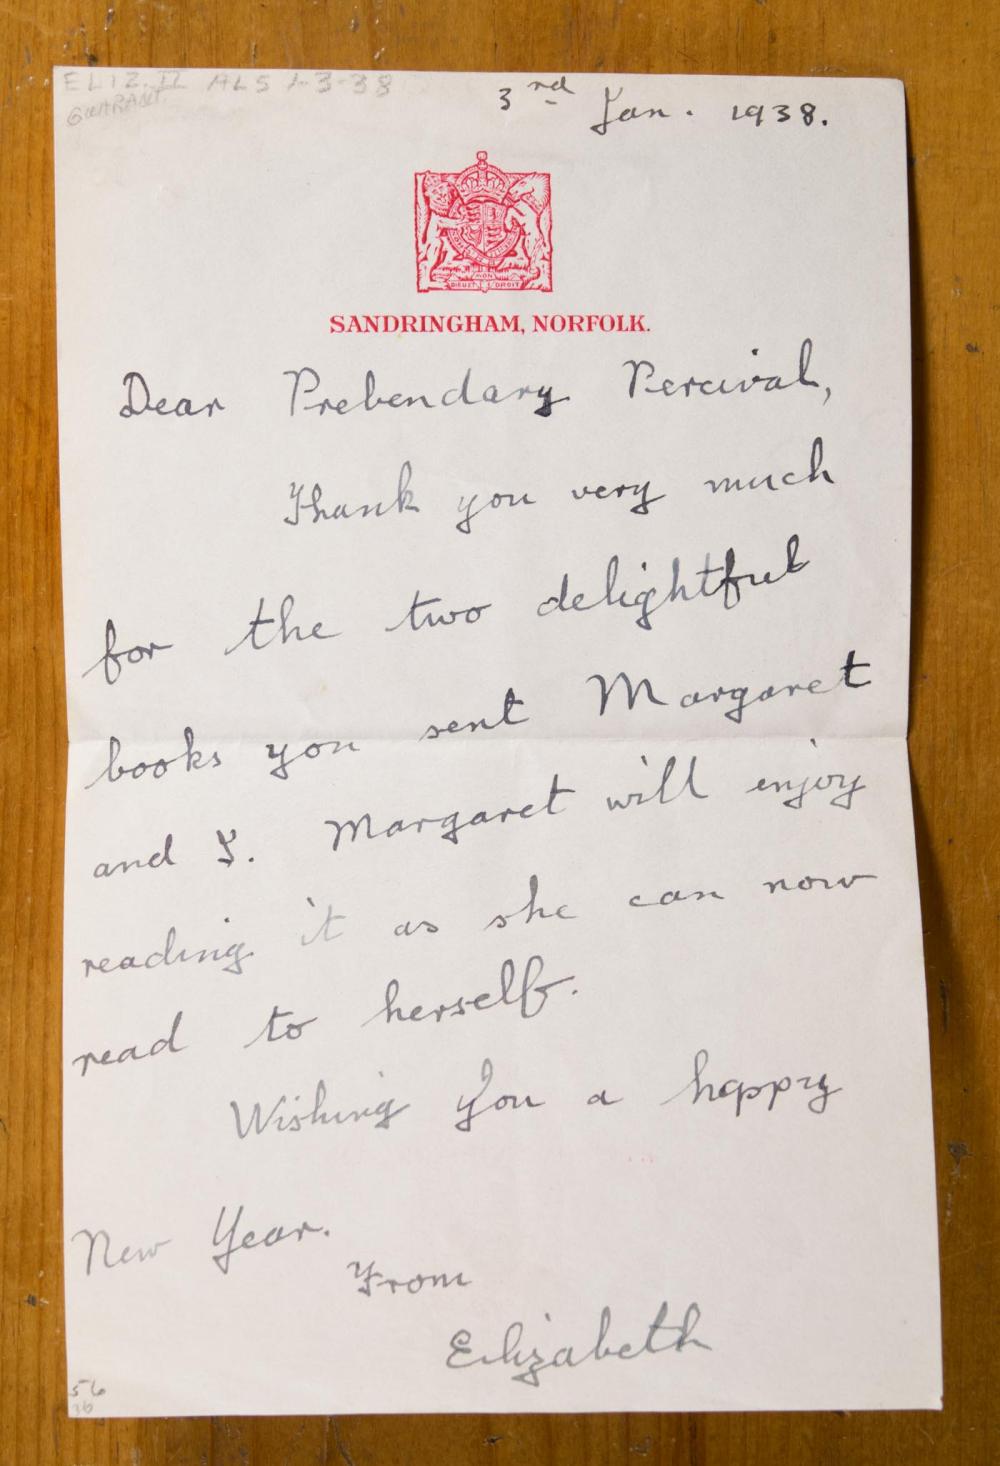 ELIZ. II ALS 1-3-38
GUARANT.
3rd Jan. 1938.
MON
DIEU ET DROIT
SANDRINGHAM, NORFOLK.
Dear Prebendary Percival,
Thank you very much
for the two delightful
books you sent Margaret
and I. Margaret will enjoy
reading it as she can now
read to herself.
Wishing you a happy
New Year.
From
Elizabeth
56